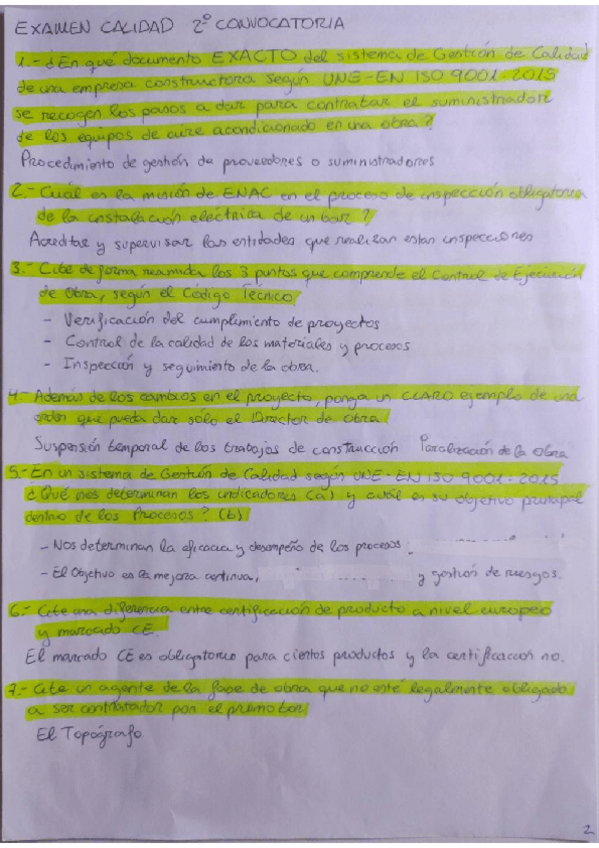 EXAMEN CALIDAD 2º CONVOCATORIA
1.- ¿En qué documento EXACTO del sistema de Gestión de Calidad
de una empresa constructora según UNE-EN ISO 9001-2015
se recogen los pasos a dar para contratar el suministrador
de los equipos de aire acondicionado en una obra?
Procedimiento de gestión de proveedores o suministradores
2.- Cuál es la misión de ENAC en el proceso de inspección obligatoria
de la instalación eléctrica de un bar?
Acreditar y supervisar las entidades que realizan estas inspecciones
3.- Cite de forma resumida los 3 puntos que comprende el Control de Ejecución
de Obra, según el Código Técnico
- Verificación del cumplimiento de proyectos
- Control de la calidad de los materiales y procesos
- Inspección y seguimiento de la obra.
4.- Además de los cambios en el proyecto, ponga un CLARO ejemplo de una
orden que pueda dar sólo el Director de Obra
Suspensión temporal de los trabajos de construcción Paralización de la obra
5.- En un sistema de Gestión de Calidad según UNE-EN ISO 9001-2015
¿Qué nos determinan los indicadores (a) y cuál es su objetivo principal
dentro de los Procesos? (b)
- Nos determinan la eficacia y desempeño de los procesos
- El Objetivo es la mejora continua, y gestión de riesgos.
6.- Cite una diferencia entre certificación de producto a nivel europeo
y marcado CE.
El marcado CE es obligatorio para ciertos productos y la certificación no.
7.- Cite un agente de la fase de obra que no esté legalmente obligado
a ser contratador por el promotor
El Topógrafo
2